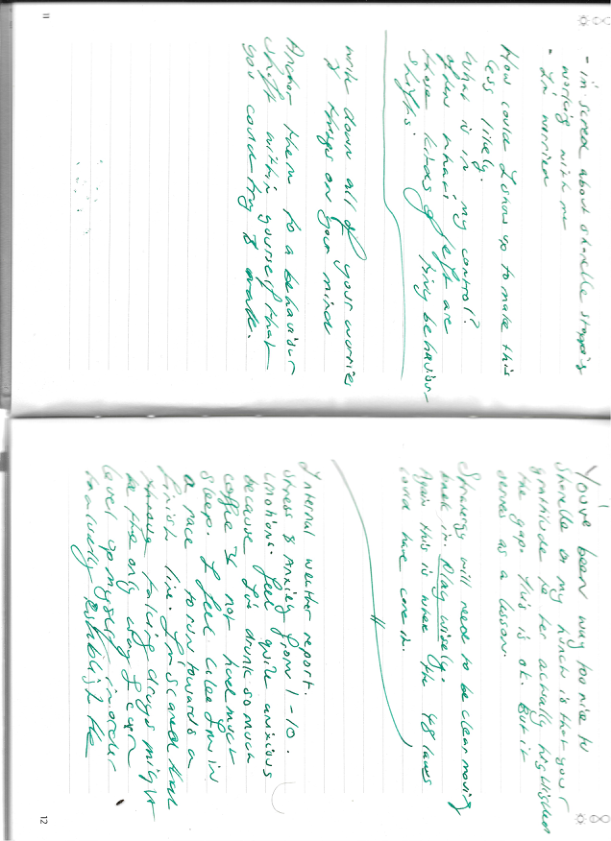 11
- I'm scared about sharelle stopping
working with me
- I'm worried
How could I show up to make this
less likely.
What is in my control?
often what left are
these kinds of tiny behaviour
shifts.
write down all of your worries
& things on your mind
Anchor them to a behaviour
shift within yourself that
you could try & make.
12
You've been way too nice to
Sharelle & my hunch is that your
gratitude to her actually highlighted
the gap. This is ok. But it
serves as a lesson.
Strategy will need to be clear moving
Play wisely.
Again this is where the 48 laws
could have come in.
Internal weather report.
stress & Anxiety from 1-10.
emotions. feel quite anxious
because I've drunk so much
coffee & not had much
sleep. I feel like I'm in
a race to run towards a
finish line. I'm scared that
taking drugs might
be the only way I can
level up myself in order
to actually establish the